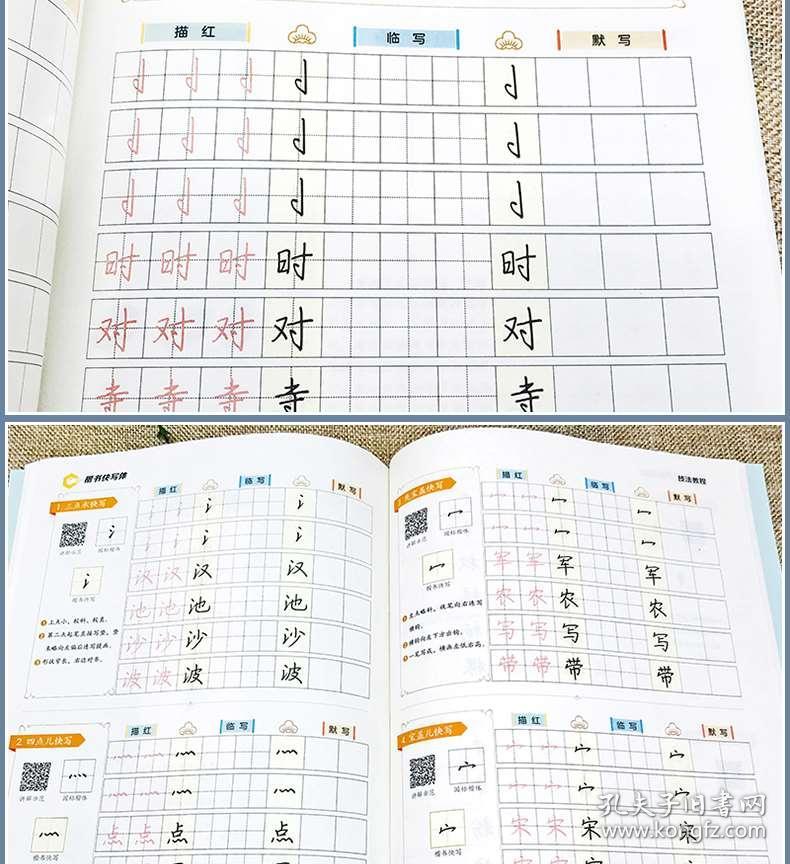 描红 临写 默写
时 时 时 时 时
对 对 对 对 对
寺 寺 寺 寺 寺
楷书快写体
1 三点水快写
描红 临写 默写
讲解示范 国标楷体
楷书快写
汉 汉 汉 汉
池 池 池 池
沙 沙 沙 沙
波 波 波 波
① 上点小，较斜、较直。
② 第二点起笔直接写竖，竖
末略向左偏后连写提画。
③ 形状窄长，右边对齐。
2 四点儿快写
描红 临写 默写
讲解示范 国标楷体
楷书快写
点 点 点 点
技法教程
描红 临写 默写
讲解示范 国标楷体
楷书快写
军 军 军 军
农 农 农 农
写 写 写 写
带 带 带 带
① 左点略斜，收笔向右连写
横钩。
② 横钩向左下方出钩。
③ 一笔写成，横画左低右高。
4 宝盖儿快写
描红 临写 默写
讲解示范 国标楷体
楷书快写
宋 宋 宋 宋
孔夫子旧书网
www.kongfz.com